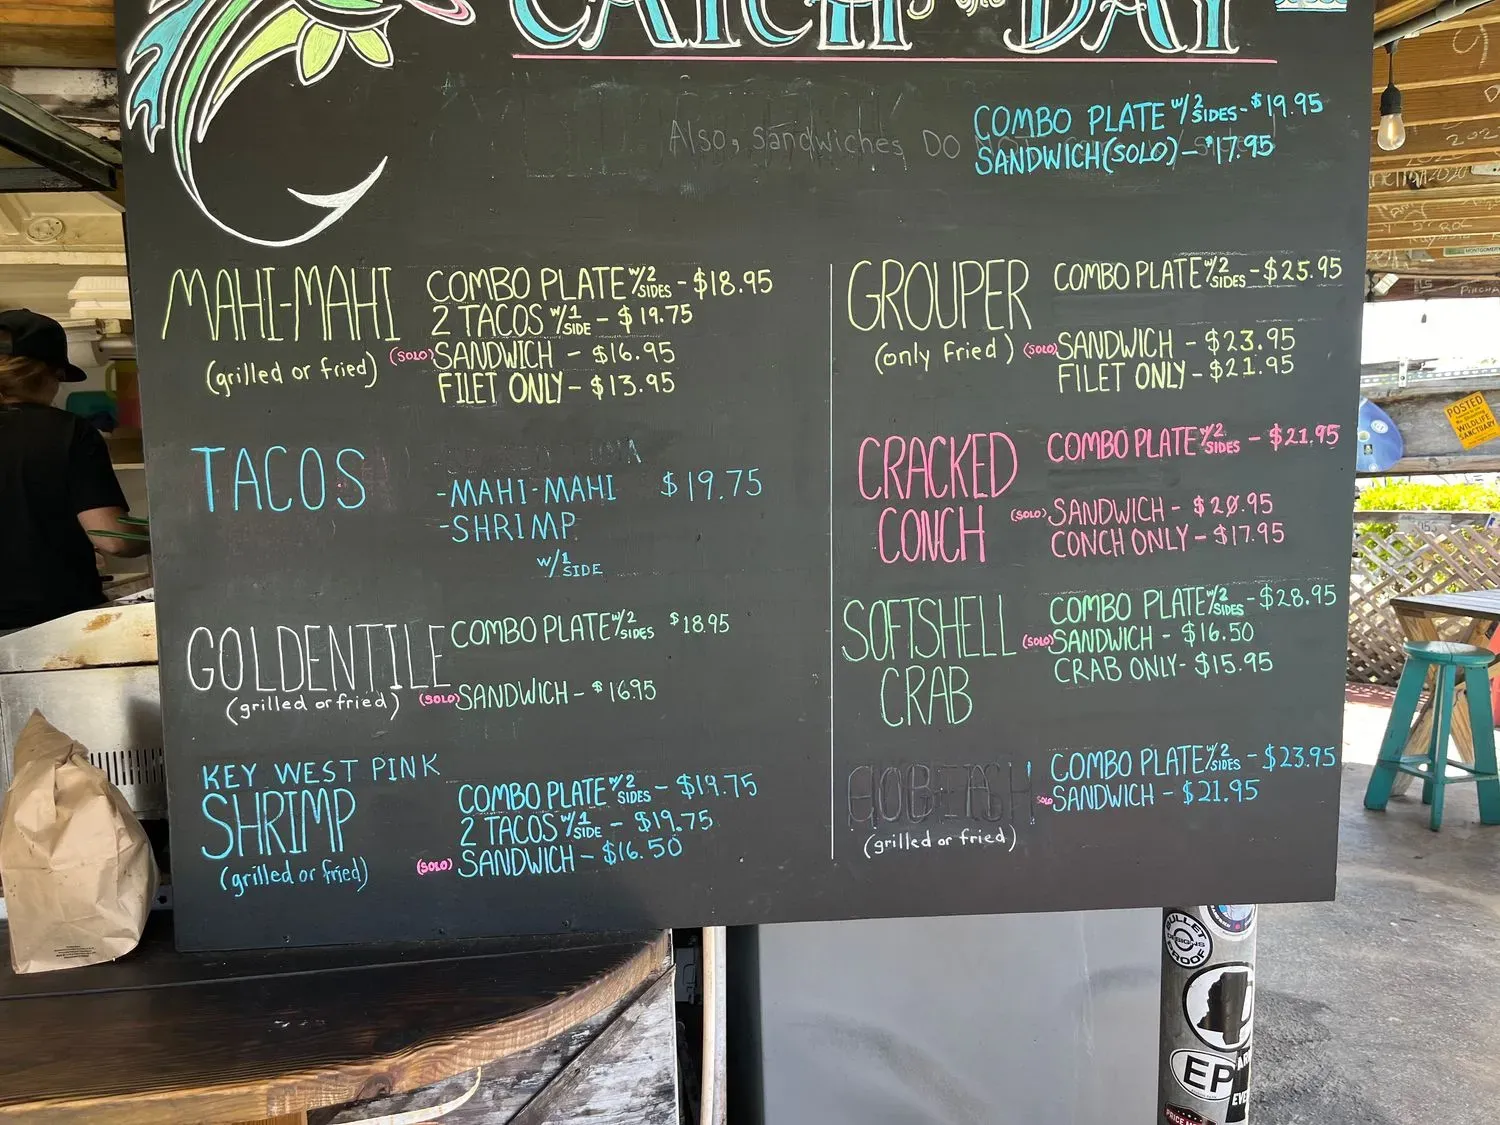 CATCH of the DAY
Also, sandwiches DO
COMBO PLATE w/2 SIDES - $19.95
SANDWICH (SOLO) - $17.95
MAHI-MAHI
(grilled or fried)
COMBO PLATE w/2 SIDES - $18.95
2 TACOS w/1 SIDE - $19.75
(SOLO) SANDWICH - $16.95
FILET ONLY - $13.95
TACOS
-MAHI-MAHI $19.75
-SHRIMP
w/1 SIDE
GOLDENTILE
(grilled or fried)
COMBO PLATE w/2 SIDES $18.95
(SOLO) SANDWICH - $16.95
KEY WEST PINK
SHRIMP
(grilled or fried)
COMBO PLATE w/2 SIDES - $19.75
2 TACOS w/1 SIDE - $19.75
(SOLO) SANDWICH - $16.50
GROUPER
(only Fried)
COMBO PLATE w/2 SIDES - $25.95
(SOLO) SANDWICH - $23.95
FILET ONLY - $21.95
CRACKED
CONCH
COMBO PLATE w/2 SIDES - $21.95
(SOLO) SANDWICH - $20.95
CONCH ONLY - $17.95
SOFTSHELL
CRAB
COMBO PLATE w/2 SIDES - $28.95
(SOLO) SANDWICH - $16.50
CRAB ONLY - $15.95
(grilled or fried)
COMBO PLATE w/2 SIDES - $23.95
SOLO SANDWICH - $21.95
POSTED
WILDLIFE
SANCTUARY
BULLET
DESIGNS
PROOF
EP